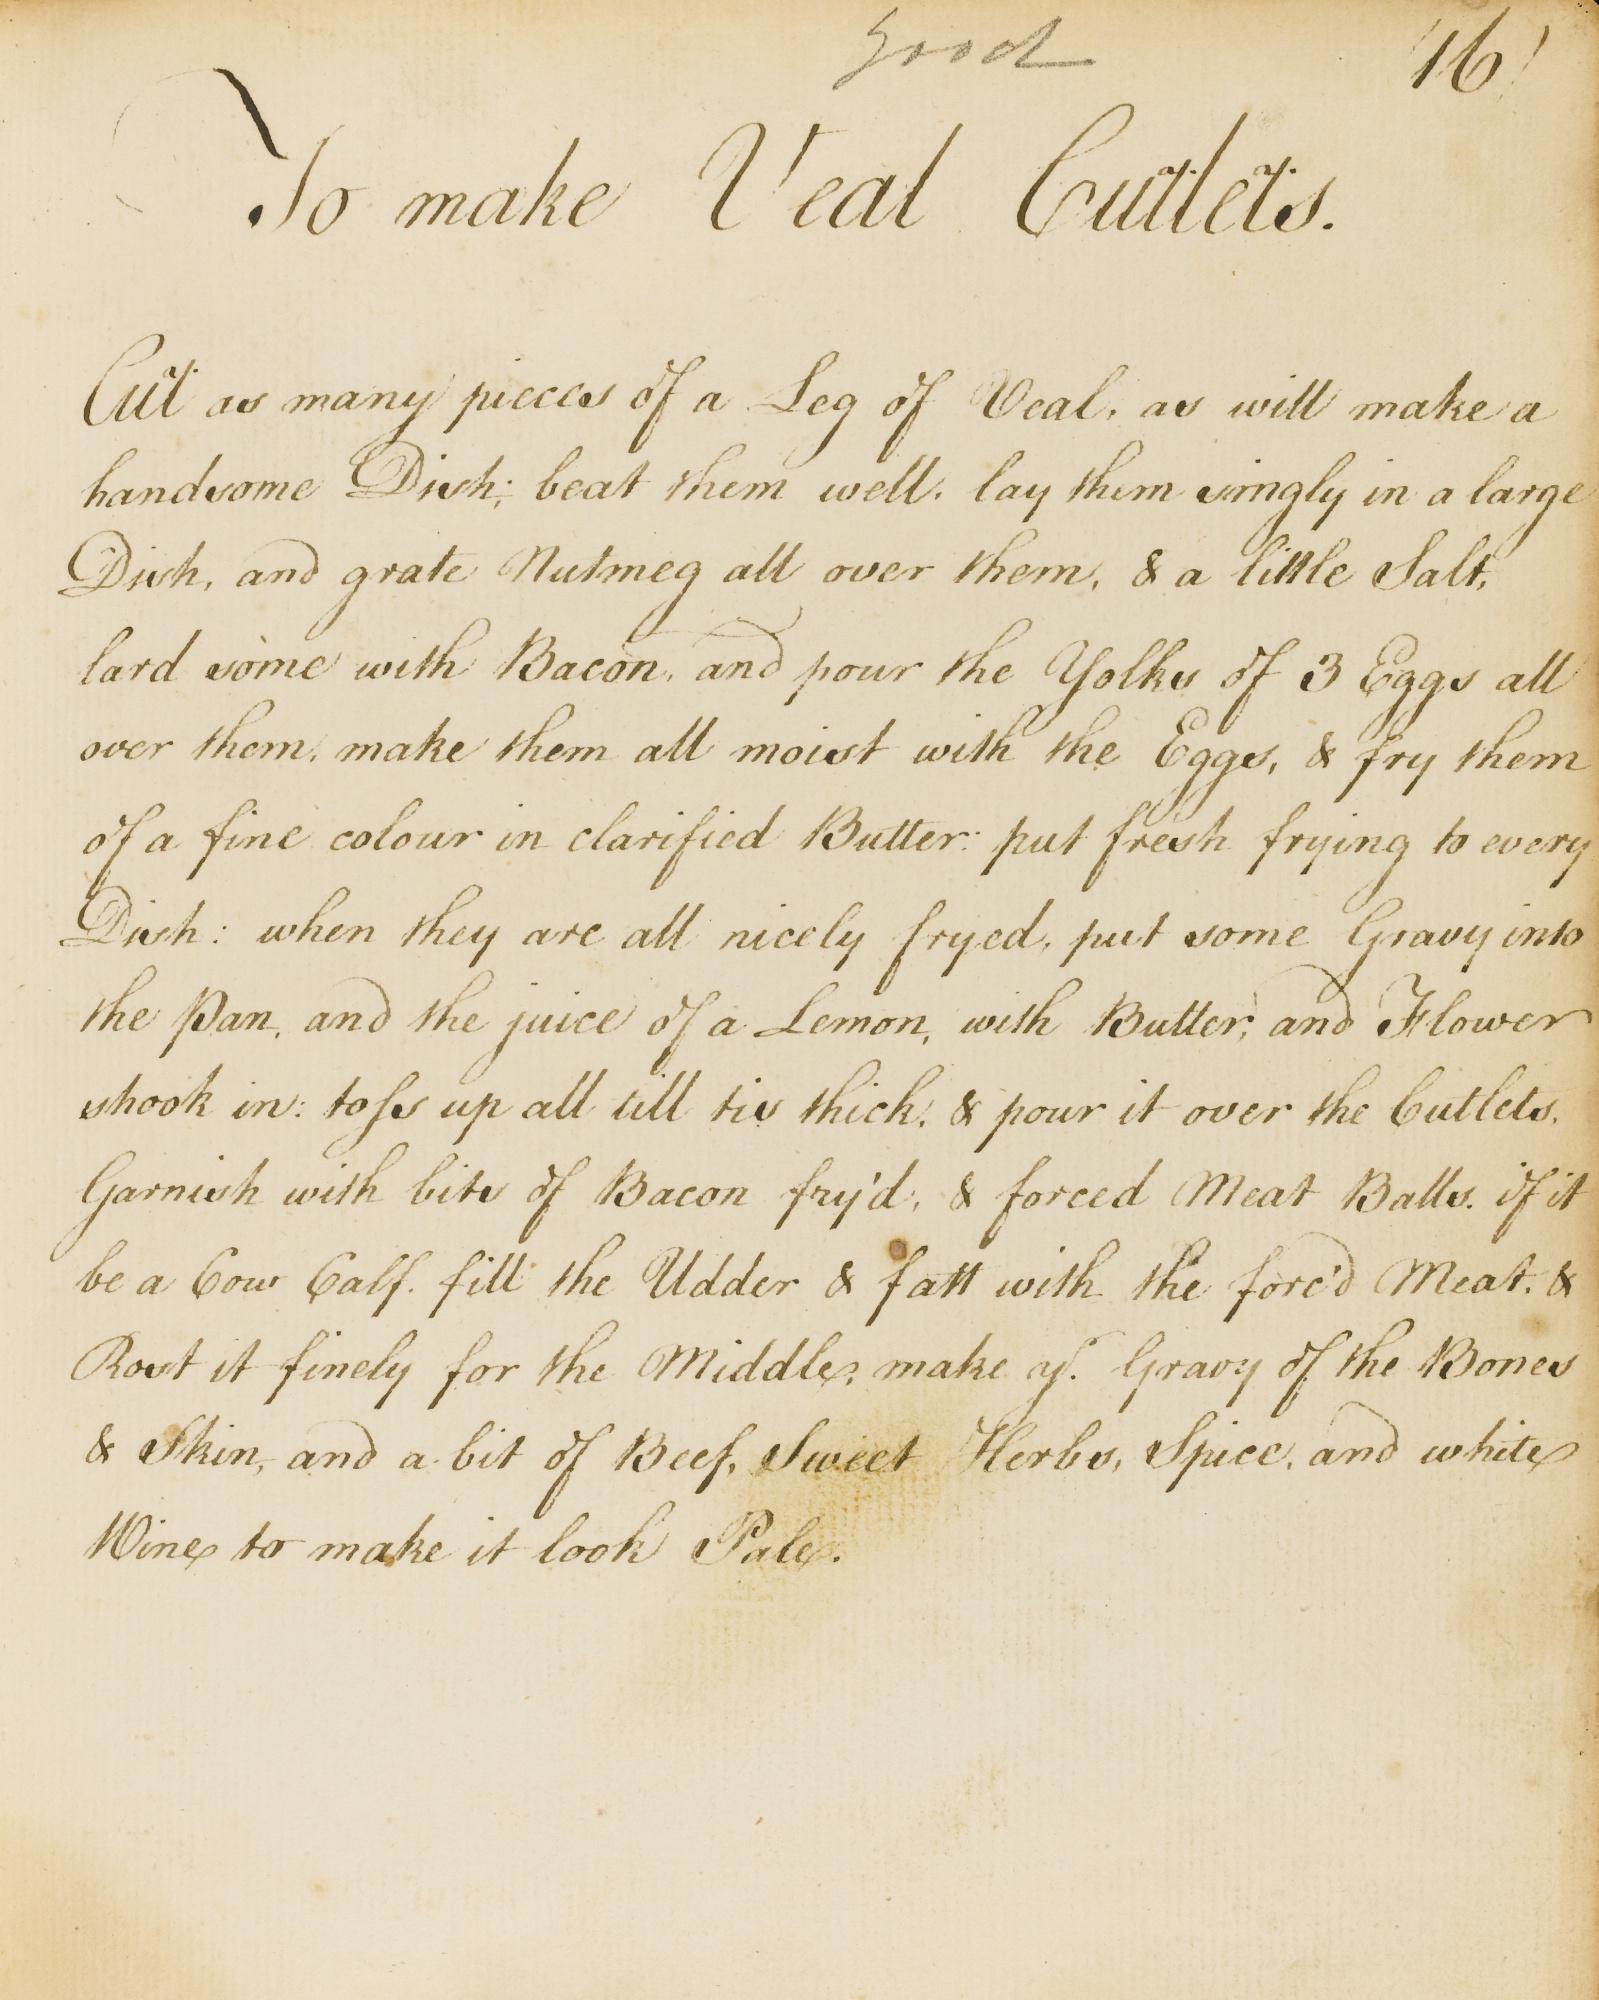 good
16
To make Veal Cutlets.
Cut as many pieces of a Leg of Veal, as will make a
handsome Dish; beat them well, lay them singly in a large
Dish, and grate Nutmeg all over them, & a little Salt,
lard some with Bacon, and pour the Yolks of 3 Eggs all
over them, make them all moist with the Eggs, & fry them
of a fine colour in clarified Butter: put fresh frying to every
Dish: when they are all nicely fryed, put some Gravy into
the Pan, and the juice of a Lemon, with Butter, and Flower
shook in: toſs up all till tis thick, & pour it over the Cutlets.
Garnish with bits of Bacon fry'd, & forced Meat Balls. if it
be a Cow Calf. fill the Udder & fatt with the forc'd Meat. &
Rost it finely for the Middle, make yr. Gravy of the Bones
& Skin, and a bit of Beef, Sweet Herbs, Spice, and white
Wine to make it look Pale.